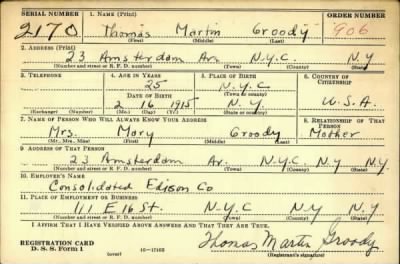 SERIAL NUMBER 1. NAME (Print) ORDER NUMBER
2170 Thomas Martin Groody 906
(First) (Middle) (Last)
2. ADDRESS (Print)
23 Amsterdam Av. N.Y.C N.Y
(Number and street or R. F. D. number) (Town) (County) (State)
3. TELEPHONE 4. AGE IN YEARS 5. PLACE OF BIRTH 6. COUNTRY OF CITIZENSHIP
25 N.Y.C
DATE OF BIRTH (Town or county)
2 16 1915 N.Y. U.S.A.
(Exchange) (Number) (Mo.) (Day) (Yr.) (State or country)
7. NAME OF PERSON WHO WILL ALWAYS KNOW YOUR ADDRESS 8. RELATIONSHIP OF THAT PERSON
Mrs. Mary Groody Mother
(Mr., Mrs., Miss) (First) (Middle) (Last)
9. ADDRESS OF THAT PERSON
23 Amsterdam Av. N.Y.C. N.Y N.Y.
(Number and street or R. F. D. number) (Town) (County) (State)
10. EMPLOYER'S NAME
Consolidated Edison Co
11. PLACE OF EMPLOYMENT OR BUSINESS
111 E 16 St. N.Y.C N.Y N.Y
(Number and street or R. F. D. number) (Town) (County) (State)
I AFFIRM THAT I HAVE VERIFIED ABOVE ANSWERS AND THAT THEY ARE TRUE.
REGISTRATION CARD
D. S. S. Form 1 (over) 16—17105 Thomas Martin Groody
(Registrant's signature)